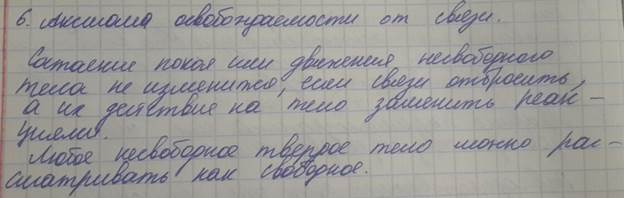 6. Аксиома освобождаемости от связи.
Состаение покоя или движения несвободного
тела не изменится, если связи отбросить,
а их действие на тело заменить реак-
циями.
Любое несвободное твердое тело можно рас-
сматривать как свободное.